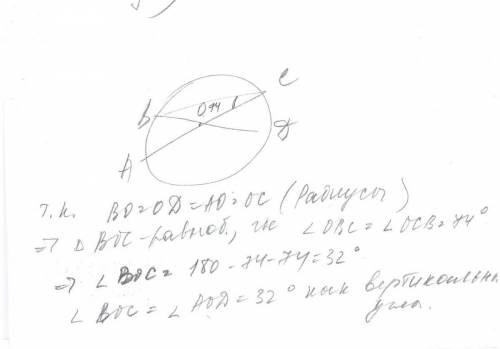 B
C
O 74
A
D
т.к. BO=OD=AO=OC (радиусы)
=> △ BOC - равноб, где ∠OBC = ∠OCB = 74°
=> ∠ BOC = 180 - 74 - 74 = 32°
∠ BOC = ∠ AOD = 32° как вертикальны
угла.